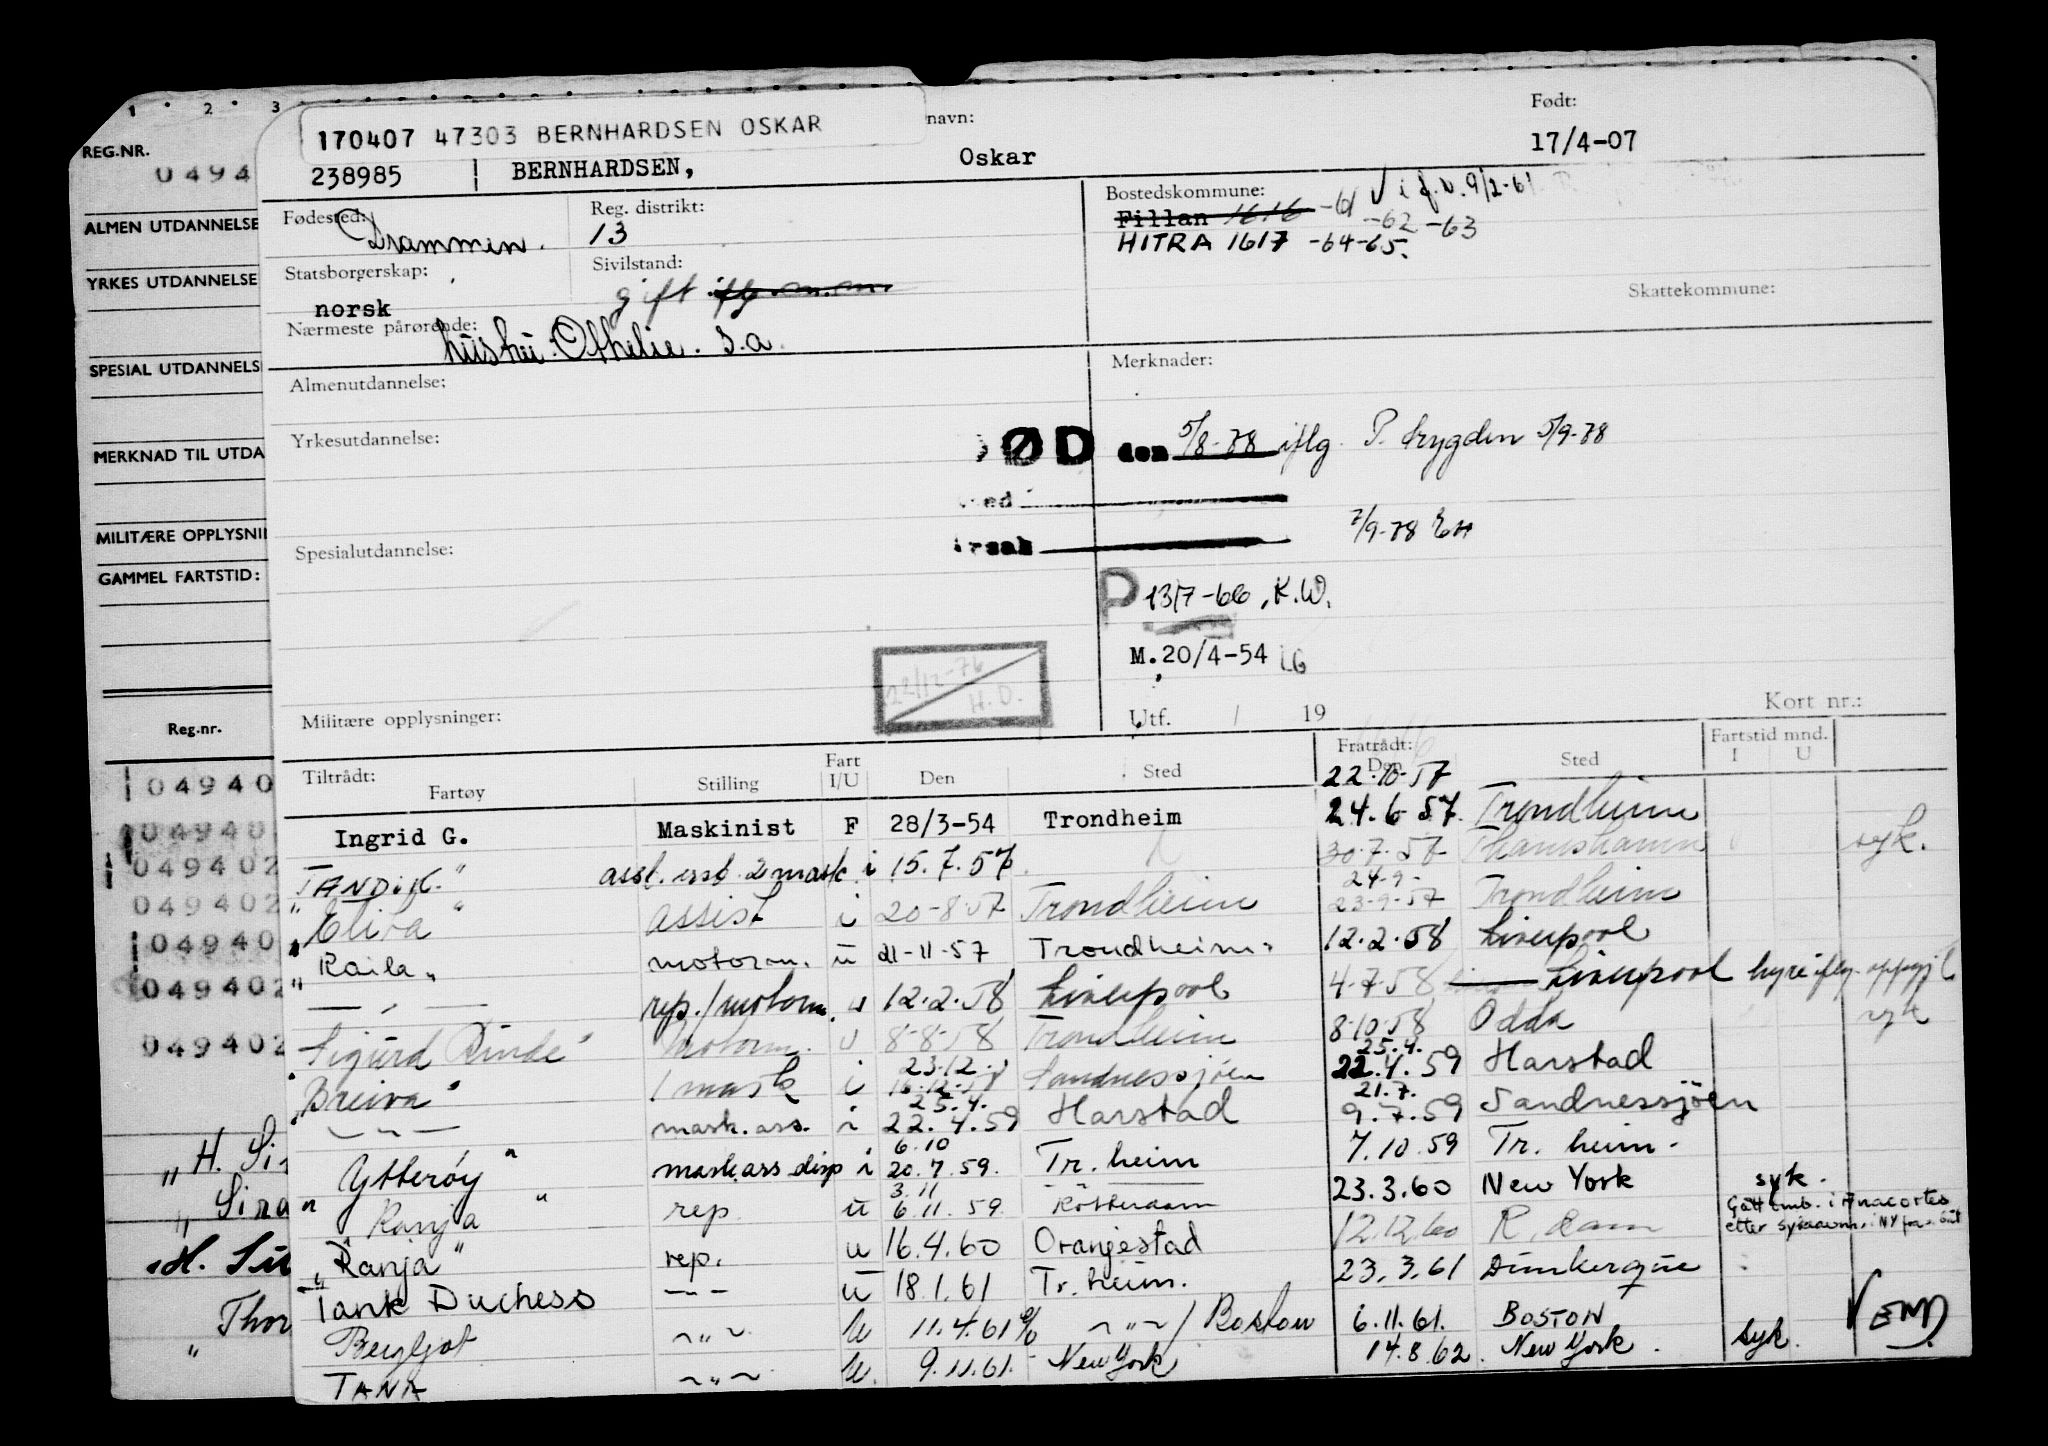 1 2 3
170407 47303 BERNHARDSEN OSKAR
navn:
Født:
REG.NR.
0494
238985 BERNHARDSEN, Oskar 17/4-07
ALMEN UTDANNELSE
YRKES UTDANNELSE
SPESIAL UTDANNELS
MERKNAD TIL UTDA
MILITÆRE OPPLYSNI
GAMMEL FARTSTID:
Fødested: Drammen.
Reg. distrikt: 13
Bostedskommune:
Fillan 1616 -61 i f. 9/2-61
-62 -63
HITRA 1617 -64-65.
Statsborgerskap: norsk
Sivilstand: gift
Skattekommune:
Nærmeste pårørende: hustru: Othelie. s.a.
Almenutdannelse:
Merknader:
Yrkesutdannelse:
ØD den 5/8-78 iflg P. trygden 5/9-78
ed
rsak
7/9-78 EH
Spesialutdannelse:
P 13/7-66, K.W.
M.20/4-54
22/12-76
H.D.
Militære opplysninger:
Utf. / 19
Kort nr.:
Reg.nr.
Tiltrådt: Fartøy Stilling Fart I/U Den Sted Fratrådt: Den Sted Fartstid mnd. I U
22.10.57
Ingrid G. Maskinist F 28/3-54 Trondheim 24.6.57. Trondheim
"TANDIK." asst. 2 mask i 15.7.57. 30.7.57 Thamshamn syk.
24-9-
"Eliva" assist i 20-8-57 Trondheim 23-9-57 Trondheim
"Raila" motorm. u 21-11-57 Trondheim 12.2.58 Liverpool
— " — rep./motorm. u 12.2.58 Liverpool 4-7-58 Liverpool hyre iflg. oppgj.
Sigurd Rinde" Motorm. u 8-8-58 Trondheim 8-10-58 Odda syk
23.12. 25.4.
"Breiva" 1 mask i 16.12.58 Sandnessjöen 22.4.59 Harstad
25.4. 21.7.
— " — mask.ass. i 22.4.59 Harstad 9.7.59 Sandnessjöen
6.10
"Ytterøy" maskass disp i 20.7.59. Tr. heim 7.10.59 Tr. heim.
3.11
"Ranja" rep. u 6.11.59 Rotterdam 23.3.60 New York syk.
Gått omb. i Anacortes
"Ranja" rep. u 16.4.60 Oranjestad 12.12.60 R.dam
Tank Duchess — " — u 18.1.61 Tr. heim. 23.3.61 Dunkerque
Bergljot — " — u 11.4.61 — " — / Boston 6.11.61. BOSTON
TANK — " — u. 9.11.61. New York 14.8.62. New York. syk.
049402
049402
049402
049402
049402
049402
049402
"H. Si
"Sira
"H. Sir
Thor
"